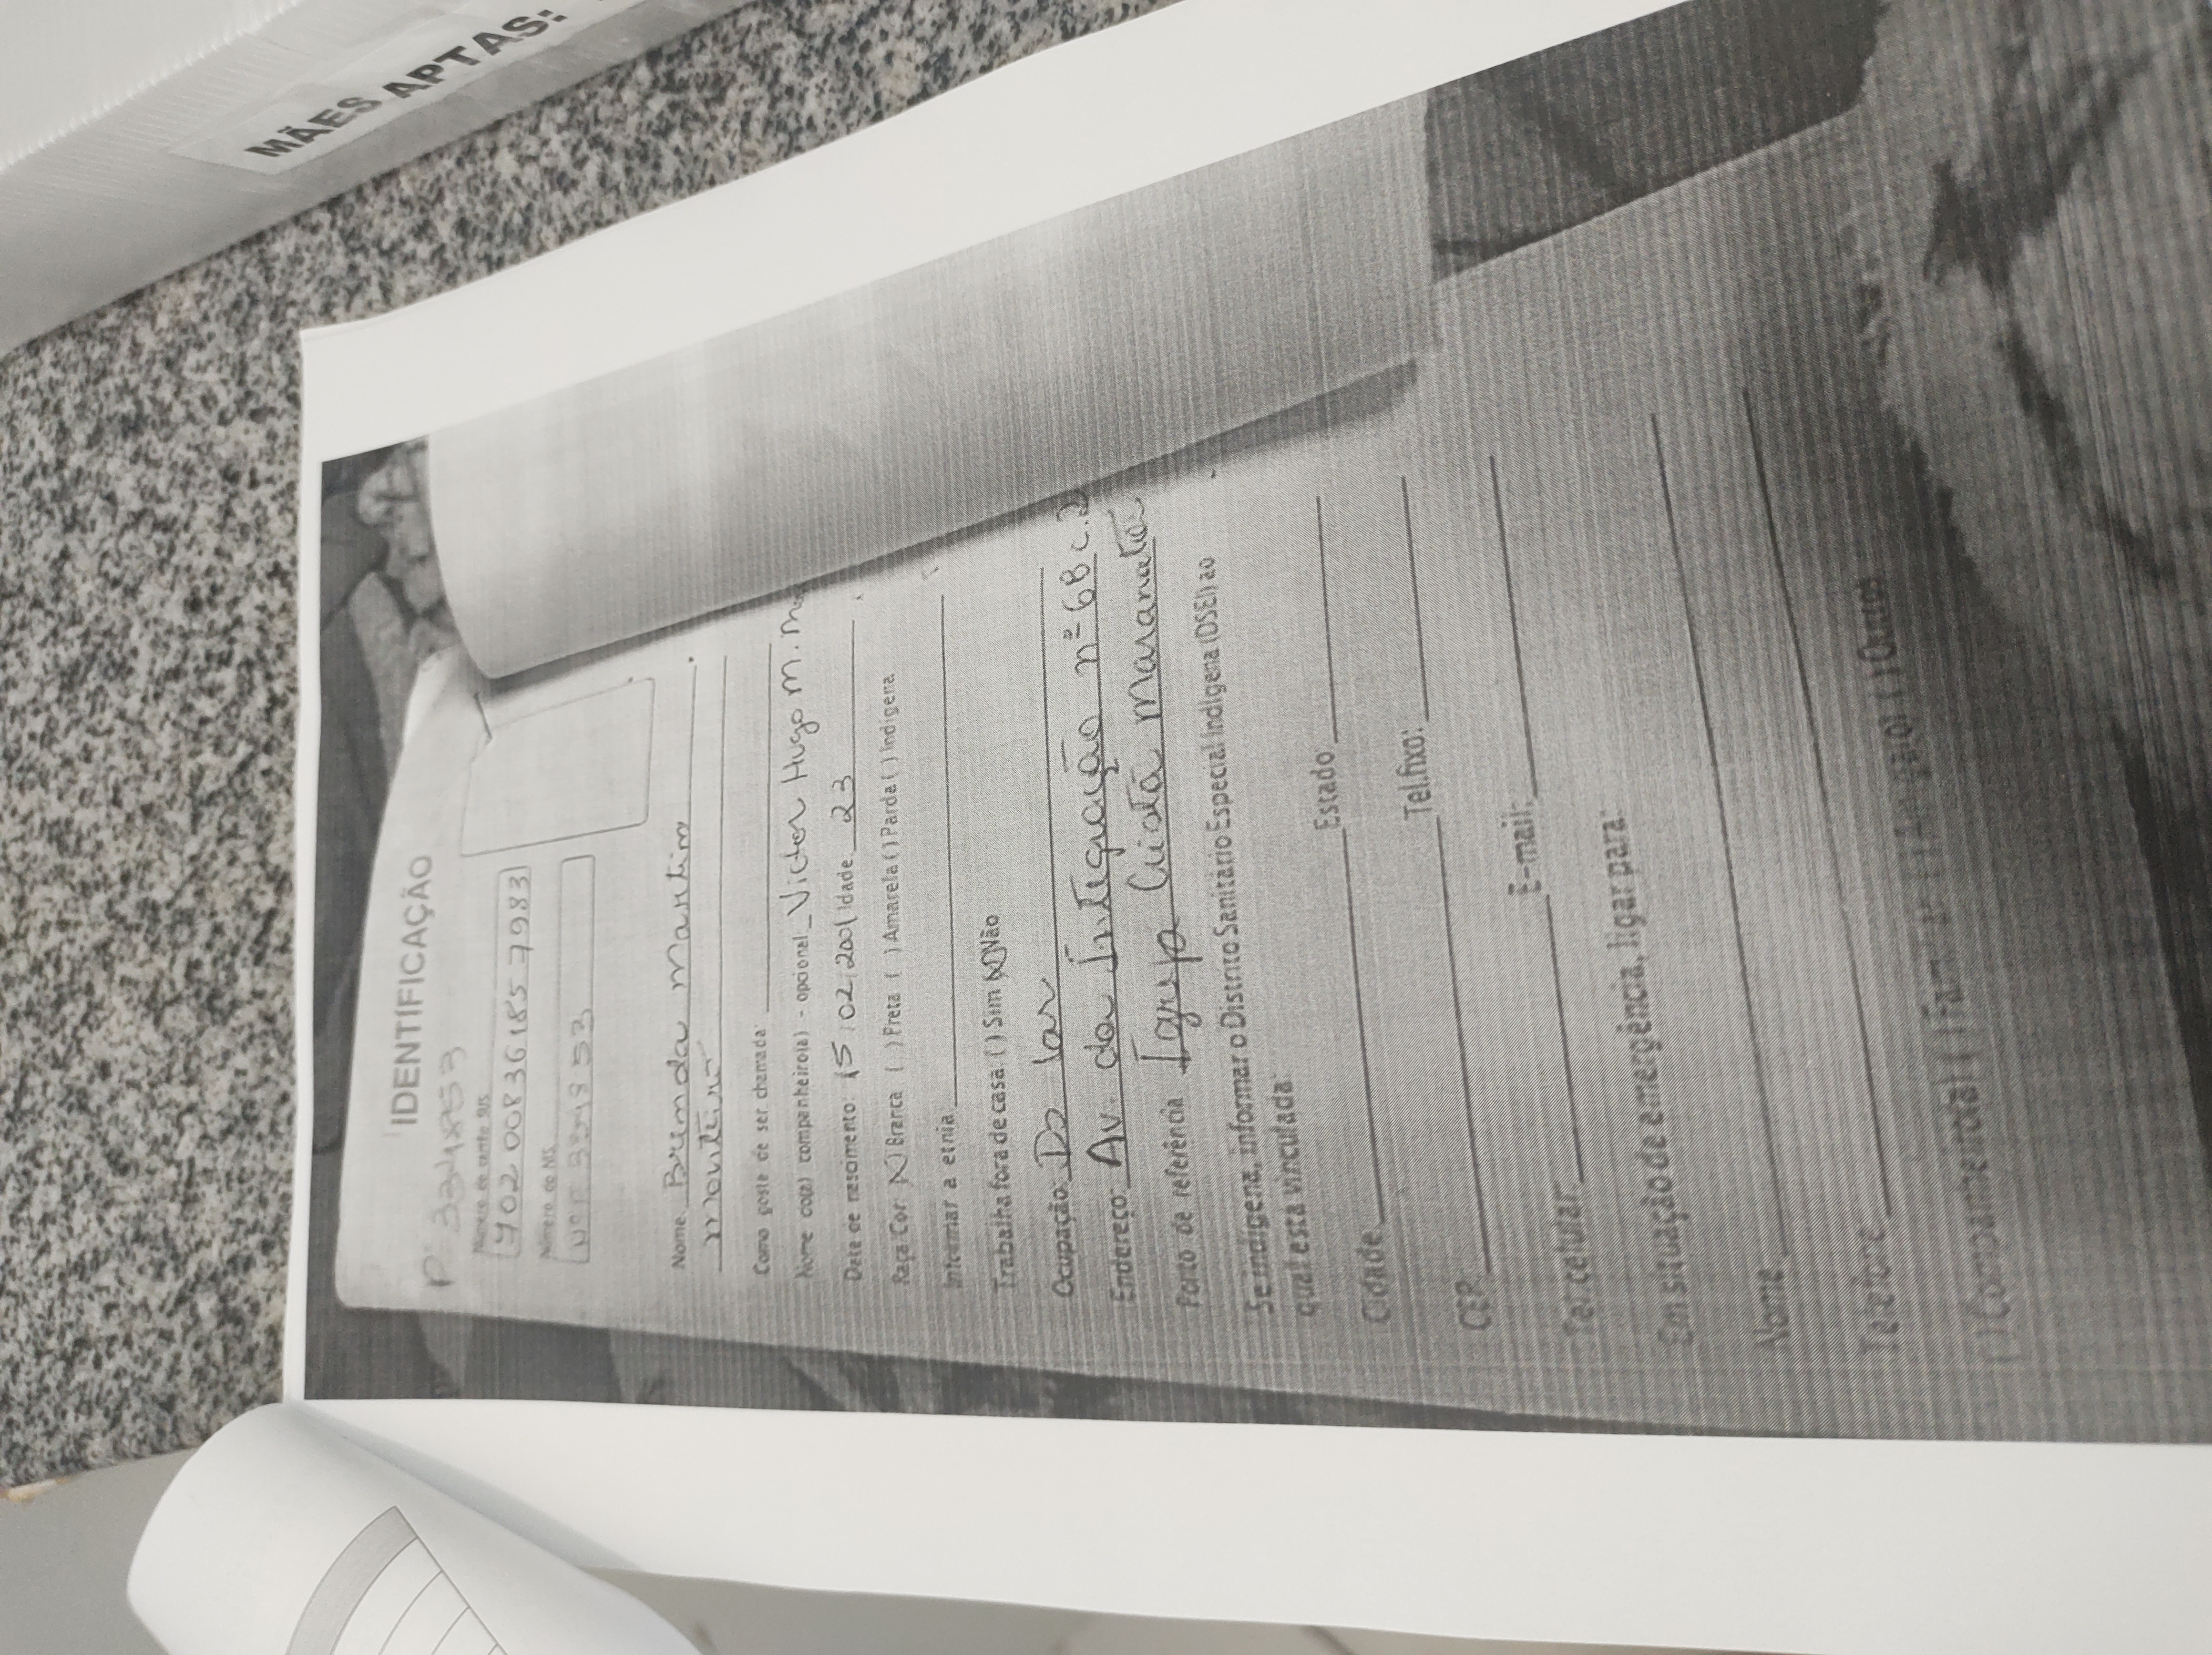 MÃES APTAS:
IDENTIFICAÇÃO
P 3348853
Número do cartão SUS
702 0083 6185 7983
Número do NIS
Nome Brenda Martins
Monteiro
Como gosta de ser chamada:
Nome do(a) companheiro(a) - opcional Victor Hugo M. M
Data de nascimento: 15/02/2001 Idade 23
Raça/Cor: (X) Branca ( ) Preta ( ) Amarela ( ) Parda ( ) Indígena
Informar a etnia
Trabalha fora de casa: ( ) Sim (X) Não
Ocupação: Do lar
Endereço: Av. da Integração nº 6B C.2
Ponto de referência Igreja Cristã Maranata
Se indígena, informar o Distrito Sanitário Especial Indígena (DSEI) ao
qual está vinculada:
Cidade Estado
CEP Tel.fixo:
Tel celular E-mail:
Em situação de emergência, ligar para:
Nome
Telefone
( ) Companheiro(a) ( ) ( ) Outro